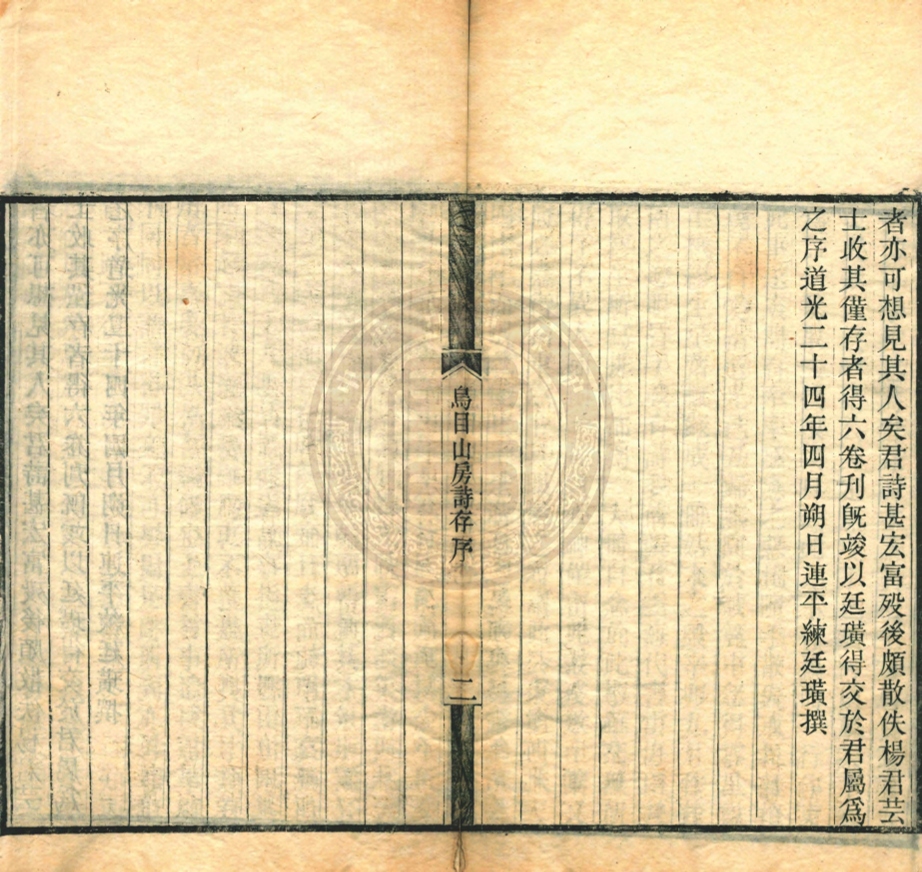 者亦可想見其人矣君詩甚宏富歿後頗散佚楊君芸
士收其僅存者得六卷刊旣竣以廷璜得交於君屬爲
之序道光二十四年四月朔日連平練廷璜撰
烏目山房詩存序
二